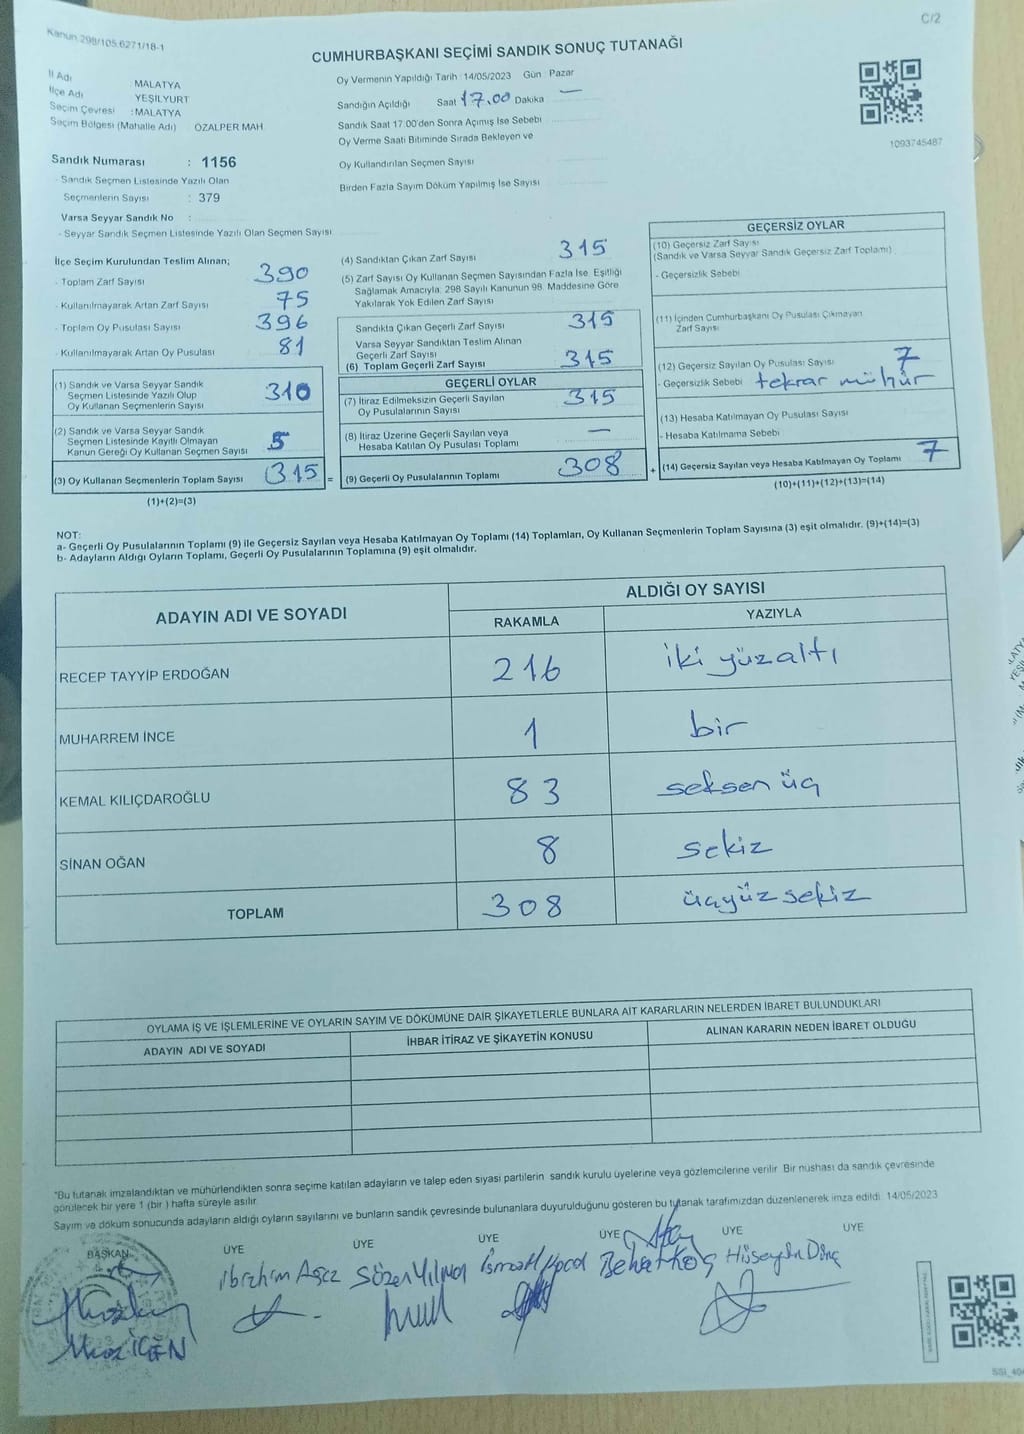 Kanun 298/105.6271/18-1
C/2
CUMHURBAŞKANI SEÇİMİ SANDIK SONUÇ TUTANAĞI
İl Adı MALATYA
İlçe Adı YEŞİLYURT
Seçim Çevresi : MALATYA
Seçim Bölgesi (Mahalle Adı) ÖZALPER MAH
Oy Vermenin Yapıldığı Tarih 14/05/2023 Gün Pazar
Sandığın Açıldığı Saat 17.00 Dakika —
Sandık Saat 17:00'den Sonra Açılmış İse Sebebi
Oy Verme Saati Bitiminde Sırada Bekleyen ve
Oy Kullandırılan Seçmen Sayısı
Birden Fazla Sayım Döküm Yapılmış İse Sayısı
1093745487
Sandık Numarası : 1156
- Sandık Seçmen Listesinde Yazılı Olan
Seçmenlerin Sayısı : 379
Varsa Seyyar Sandık No :
- Seyyar Sandık Seçmen Listesinde Yazılı Olan Seçmen Sayısı
İlçe Seçim Kurulundan Teslim Alınan;
- Toplam Zarf Sayısı 390
- Kullanılmayarak Artan Zarf Sayısı 75
- Toplam Oy Pusulası Sayısı 396
- Kullanılmayarak Artan Oy Pusulası 81
(1) Sandık ve Varsa Seyyar Sandık
Seçmen Listesinde Yazılı Olup
Oy Kullanan Seçmenlerin Sayısı 310
(2) Sandık ve Varsa Seyyar Sandık
Seçmen Listesinde Kayıtlı Olmayan
Kanun Gereği Oy Kullanan Seçmen Sayısı 5
(3) Oy Kullanan Seçmenlerin Toplam Sayısı 315 =
(1)+(2)=(3)
(4) Sandıktan Çıkan Zarf Sayısı 315
(5) Zarf Sayısı Oy Kullanan Seçmen Sayısından Fazla İse, Eşitliği
Sağlamak Amacıyla, 298 Sayılı Kanunun 98. Maddesine Göre
Yakılarak Yok Edilen Zarf Sayısı
Sandıkta Çıkan Geçerli Zarf Sayısı 315
Varsa Seyyar Sandıktan Teslim Alınan
Geçerli Zarf Sayısı
(6) Toplam Geçerli Zarf Sayısı 315
GEÇERLİ OYLAR
(7) İtiraz Edilmeksizin Geçerli Sayılan
Oy Pusulalarının Sayısı 315
(8) İtiraz Üzerine Geçerli Sayılan veya
Hesaba Katılan Oy Pusulası Toplamı —
(9) Geçerli Oy Pusulalarının Toplamı 308 +
GEÇERSİZ OYLAR
(10) Geçersiz Zarf Sayısı
(Sandık ve Varsa Seyyar Sandık Geçersiz Zarf Toplamı)
- Geçersizlik Sebebi
(11) İçinden Cumhurbaşkanı Oy Pusulası Çıkmayan
Zarf Sayısı
(12) Geçersiz Sayılan Oy Pusulası Sayısı 7
- Geçersizlik Sebebi tekrar mühür
(13) Hesaba Katılmayan Oy Pusulası Sayısı
- Hesaba Katılmama Sebebi
(14) Geçersiz Sayılan veya Hesaba Katılmayan Oy Toplamı 7
(10)+(11)+(12)+(13)=(14)
NOT:
a- Geçerli Oy Pusulalarının Toplamı (9) ile Geçersiz Sayılan veya Hesaba Katılmayan Oy Toplamı (14) Toplamları, Oy Kullanan Seçmenlerin Toplam Sayısına (3) eşit olmalıdır. (9)+(14)=(3)
b- Adayların Aldığı Oyların Toplamı, Geçerli Oy Pusulalarının Toplamına (9) eşit olmalıdır.
ADAYIN ADI VE SOYADI
ALDIĞI OY SAYISI
RAKAMLA YAZIYLA
RECEP TAYYİP ERDOĞAN 216 iki yüzaltı
MUHARREM İNCE 1 bir
KEMAL KILIÇDAROĞLU 83 seksen üç
SİNAN OĞAN 8 sekiz
TOPLAM 308 üçyüz sekiz
OYLAMA İŞ VE İŞLEMLERİNE VE OYLARIN SAYIM VE DÖKÜMÜNE DAİR ŞİKAYETLERLE BUNLARA AİT KARARLARIN NELERDEN İBARET BULUNDUKLARI
ADAYIN ADI VE SOYADI İHBAR İTİRAZ VE ŞİKAYETİN KONUSU ALINAN KARARIN NEDEN İBARET OLDUĞU
*Bu tutanak imzalandıktan ve mühürlendikten sonra seçime katılan adayların ve talep eden siyasi partilerin sandık kurulu üyelerine veya gözlemcilerine verilir. Bir nüshası da sandık çevresinde
görülecek bir yere 1 (bir ) hafta süreyle asılır.
Sayım ve döküm sonucunda adayların aldığı oyların sayılarını ve bunların sandık çevresinde bulunanlara duyurulduğunu gösteren bu tutanak tarafımızdan düzenlenerek imza edildi. 14/05/2023
BAŞKAN ÜYE ÜYE ÜYE ÜYE ÜYE ÜYE
İbrahim Sözen Yılmaz İsmail Hüseyin
İÇEN